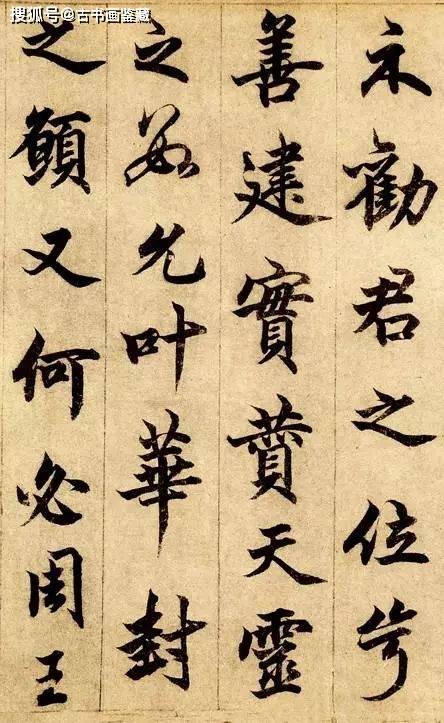 搜狐号@古书画鉴藏
勸君之位
善建實天靈
之允叶華封
之願又何必周王